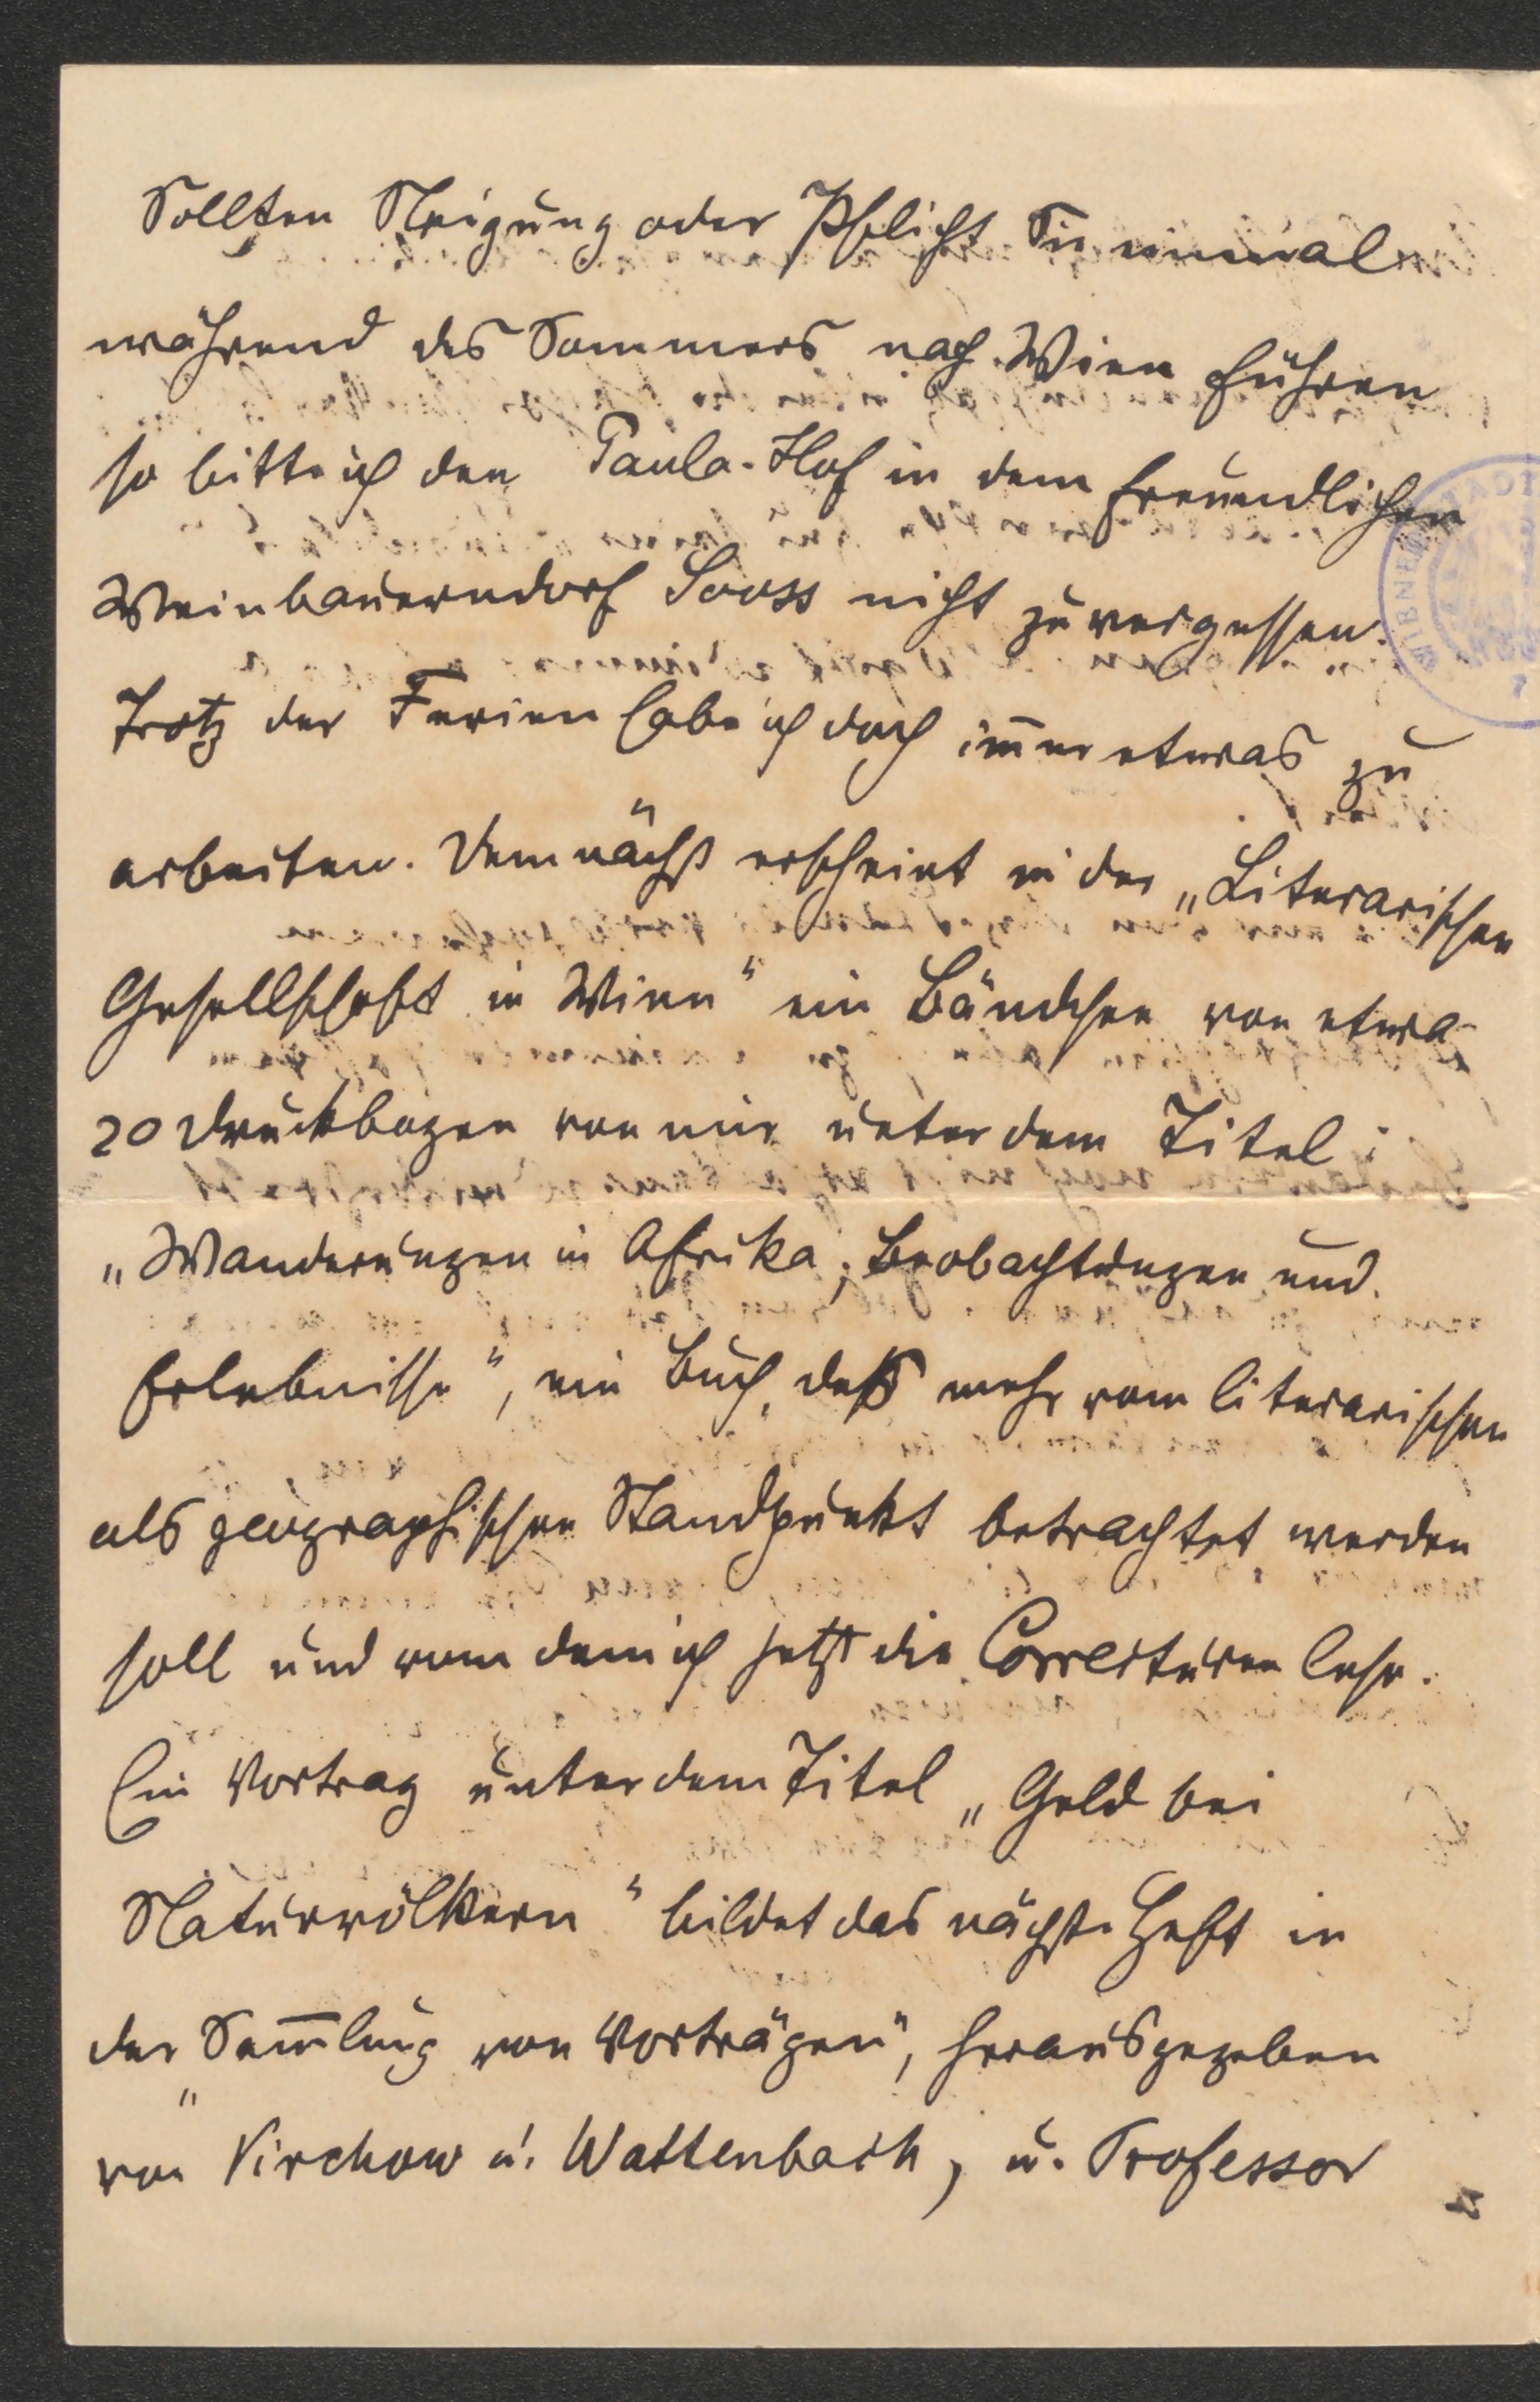 Sollten Neigung oder Pflicht Sie einmal
während des Sommers nach Wien führen
so bitte ich den Paula-Hof in dem freundlichen
Weinbauerndorf Sooss nicht zu vergessen.
Trotz der Ferien habe ich doch im̅er etwas zu
arbeiten. Demnächst erscheint in der „Literarischen
Gesellschaft in Wien" ein Bändchen von etwa
20 Druckbogen von mir unter dem Titel:
„Wanderungen in Afrika; Beobachtungen und
Erlebnisse", ein Buch, daß mehr vom literarischen
als geographischen Standpunkt betrachtet werden
soll und vom dem ich jetzt die Correcturen lese.
Ein Vortrag unter dem Titel „Geld bei
Naturvölkern" bildet das nächste Heft in
der „Sam̅lung von Vorträgen", herausgegeben
von Virchow u. Wattenbach, u. Professor